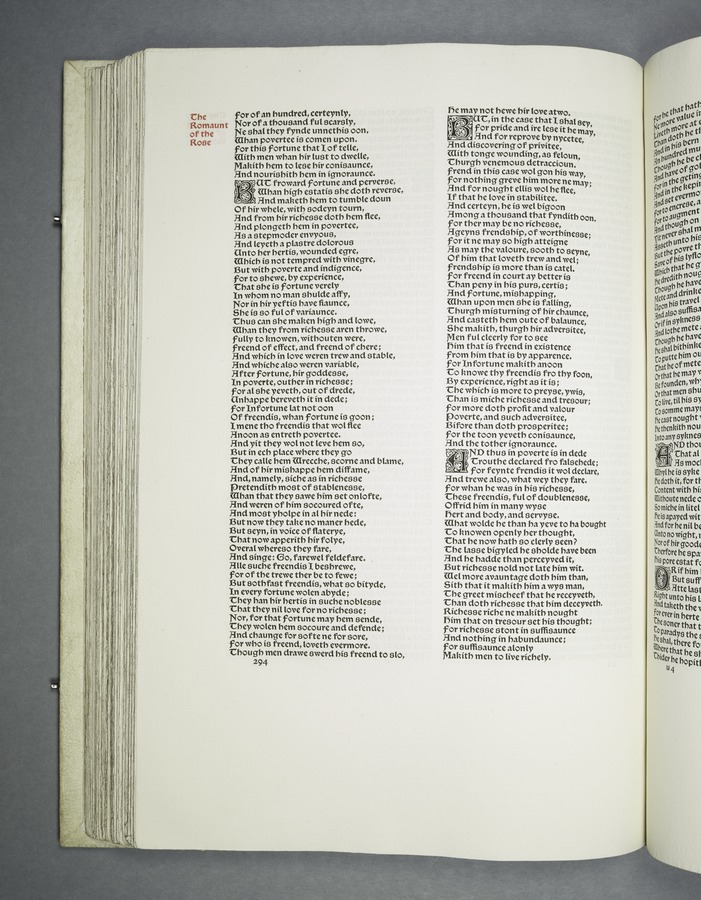 The
Romaunt
of the
Rose
For of an hundred, certeynly,
Nor of a thousand ful scarsly,
Ne shal they fynde unnethis oon,
Whan povertee is comen upon.
For this Fortune that I of telle,
With men whan hir lust to dwelle,
Makith hem to lese hir conisaunce,
And nourishith hem in ignoraunce.
BUT froward Fortune and perverse,
Whan high estatis she doth reverse,
And maketh hem to tumble doun
Of hir whele, with sodeyn tourn,
And from hir richesse doth hem flee,
And plongeth hem in povertee,
As a stepmoder envyous,
And leyeth a plastre dolorous
Unto her hertis, wounded egre,
Which is not tempred with vinegre,
But with poverte and indigence,
For to shewe, by experience,
That she is Fortune verely
In whom no man shulde affy,
Nor in hir yeftis have fiaunce,
She is so ful of variaunce.
Thus can she maken high and lowe,
Whan they from richesse aren throwe,
Fully to knowen, withouten were,
Freend of effect, and freend of chere;
And which in love weren trew and stable,
And whiche also weren variable,
After Fortune, hir goddesse,
In poverte, outher in richesse;
For al she yeveth, out of drede,
Unhappe bereveth it in dede;
For Infortune lat not oon
Of freendis, whan Fortune is goon;
I mene tho freendis that wol flee
Anoon as entreth povertee.
And yit they wol not leve hem so,
But in ech place where they go
They calle hem Wrecche, scorne and blame,
And of hir mishappe hem diffame,
And, namely, siche as in richesse
Pretendith most of stablenesse,
Whan that they sawe him set onlofte,
And weren of him socoured ofte,
And most yholpe in al hir nede:
But now they take no maner hede,
But seyn, in voice of flaterye,
That now apperith hir folye,
Overal whereso they fare,
And singe: Go, farewel feldefare.
Alle suche freendis I beshrewe,
For of the trewe ther be to fewe;
But sothfast freendis, what so bityde,
In every fortune wolen abyde;
They han hir hertis in suche noblesse
That they nil love for no richesse;
Nor, for that Fortune may hem sende,
They wolen hem socoure and defende;
And chaunge for softe ne for sore,
For who is freend, loveth evermore.
Though men drawe swerd his freend to slo,
294
He may not hewe hir love atwo.
BUT, in the case that I shal sey,
For pride and ire lese it he may,
And for reprove by nycetee,
And discovering of privitee,
With tonge wounding, as feloun,
Thurgh venemous detraccioun.
Frend in this case wol gon his way,
For nothing greve him more ne may;
And for nought ellis wol he flee,
If that he love in stabilitee.
And certeyn, he is wel bigoon
Among a thousand that fyndith oon.
For ther may be no richesse,
Ageyns frendship, of worthinesse;
For it ne may so high atteigne
As may the valoure, sooth to seyne,
Of him that loveth trew and wel;
Frendship is more than is catel.
For freend in court ay better is
Than peny in his purs, certis;
And Fortune, mishapping,
Whan upon men she is falling,
Thurgh misturning of hir chaunce,
And casteth hem oute of balaunce,
She makith, thurgh hir adversitee,
Men ful cleerly for to see
Him that is freend in existence
From him that is by apparence.
For Infortune makith anoon
To knowe thy freendis fro thy foon,
By experience, right as it is;
The which is more to preyse, ywis,
Than is miche richesse and tresour;
For more doth profit and valour
Poverte, and such adversitee,
Bifore than doth prosperitee;
For the toon yeveth conisaunce,
And the tother ignoraunce.
AND thus in poverte is in dede
Trouthe declared fro falsehede;
For feynte frendis it wol declare,
And trewe also, what wey they fare.
For whan he was in his richesse,
These freendis, ful of doublenesse,
Offrid him in many wyse
Hert and body, and servyse.
What wolde he than ha yeve to ha bought
To knowen openly her thought,
That he now hath so clerly seen?
The lasse bigyled he sholde have been
And he hadde than perceyved it,
But richesse nold not late him wit.
Wel more avauntage doth him than,
Sith that it makith him a wys man,
The greet mischeef that he receyveth,
Than doth richesse that him deceyveth.
Richesse riche ne makith nought
Him that on tresour set his thought;
For richesse stont in suffisaunce
And nothing in habundaunce;
For suffisaunce alonly
Makith men to live richely.